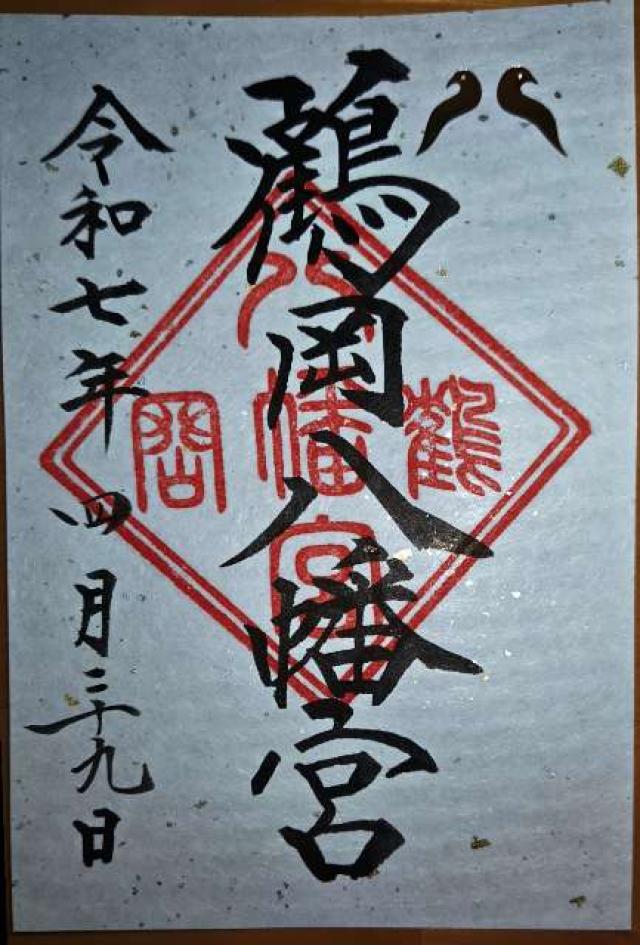 鶴岡八幡宮
鶴
八幡宮
岡
令和七年四月二十九日